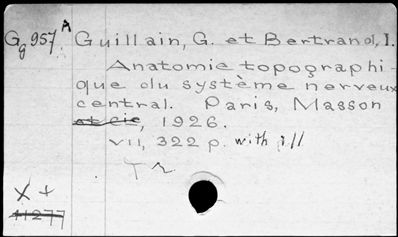 Gg957.A Guillain, G. et Bertrand, I.
Anatomie topographi-
que du système nerveux
central. Paris, Masson
et cie, 1926.
VII, 322 p. with ill
Tr.
X +
11277